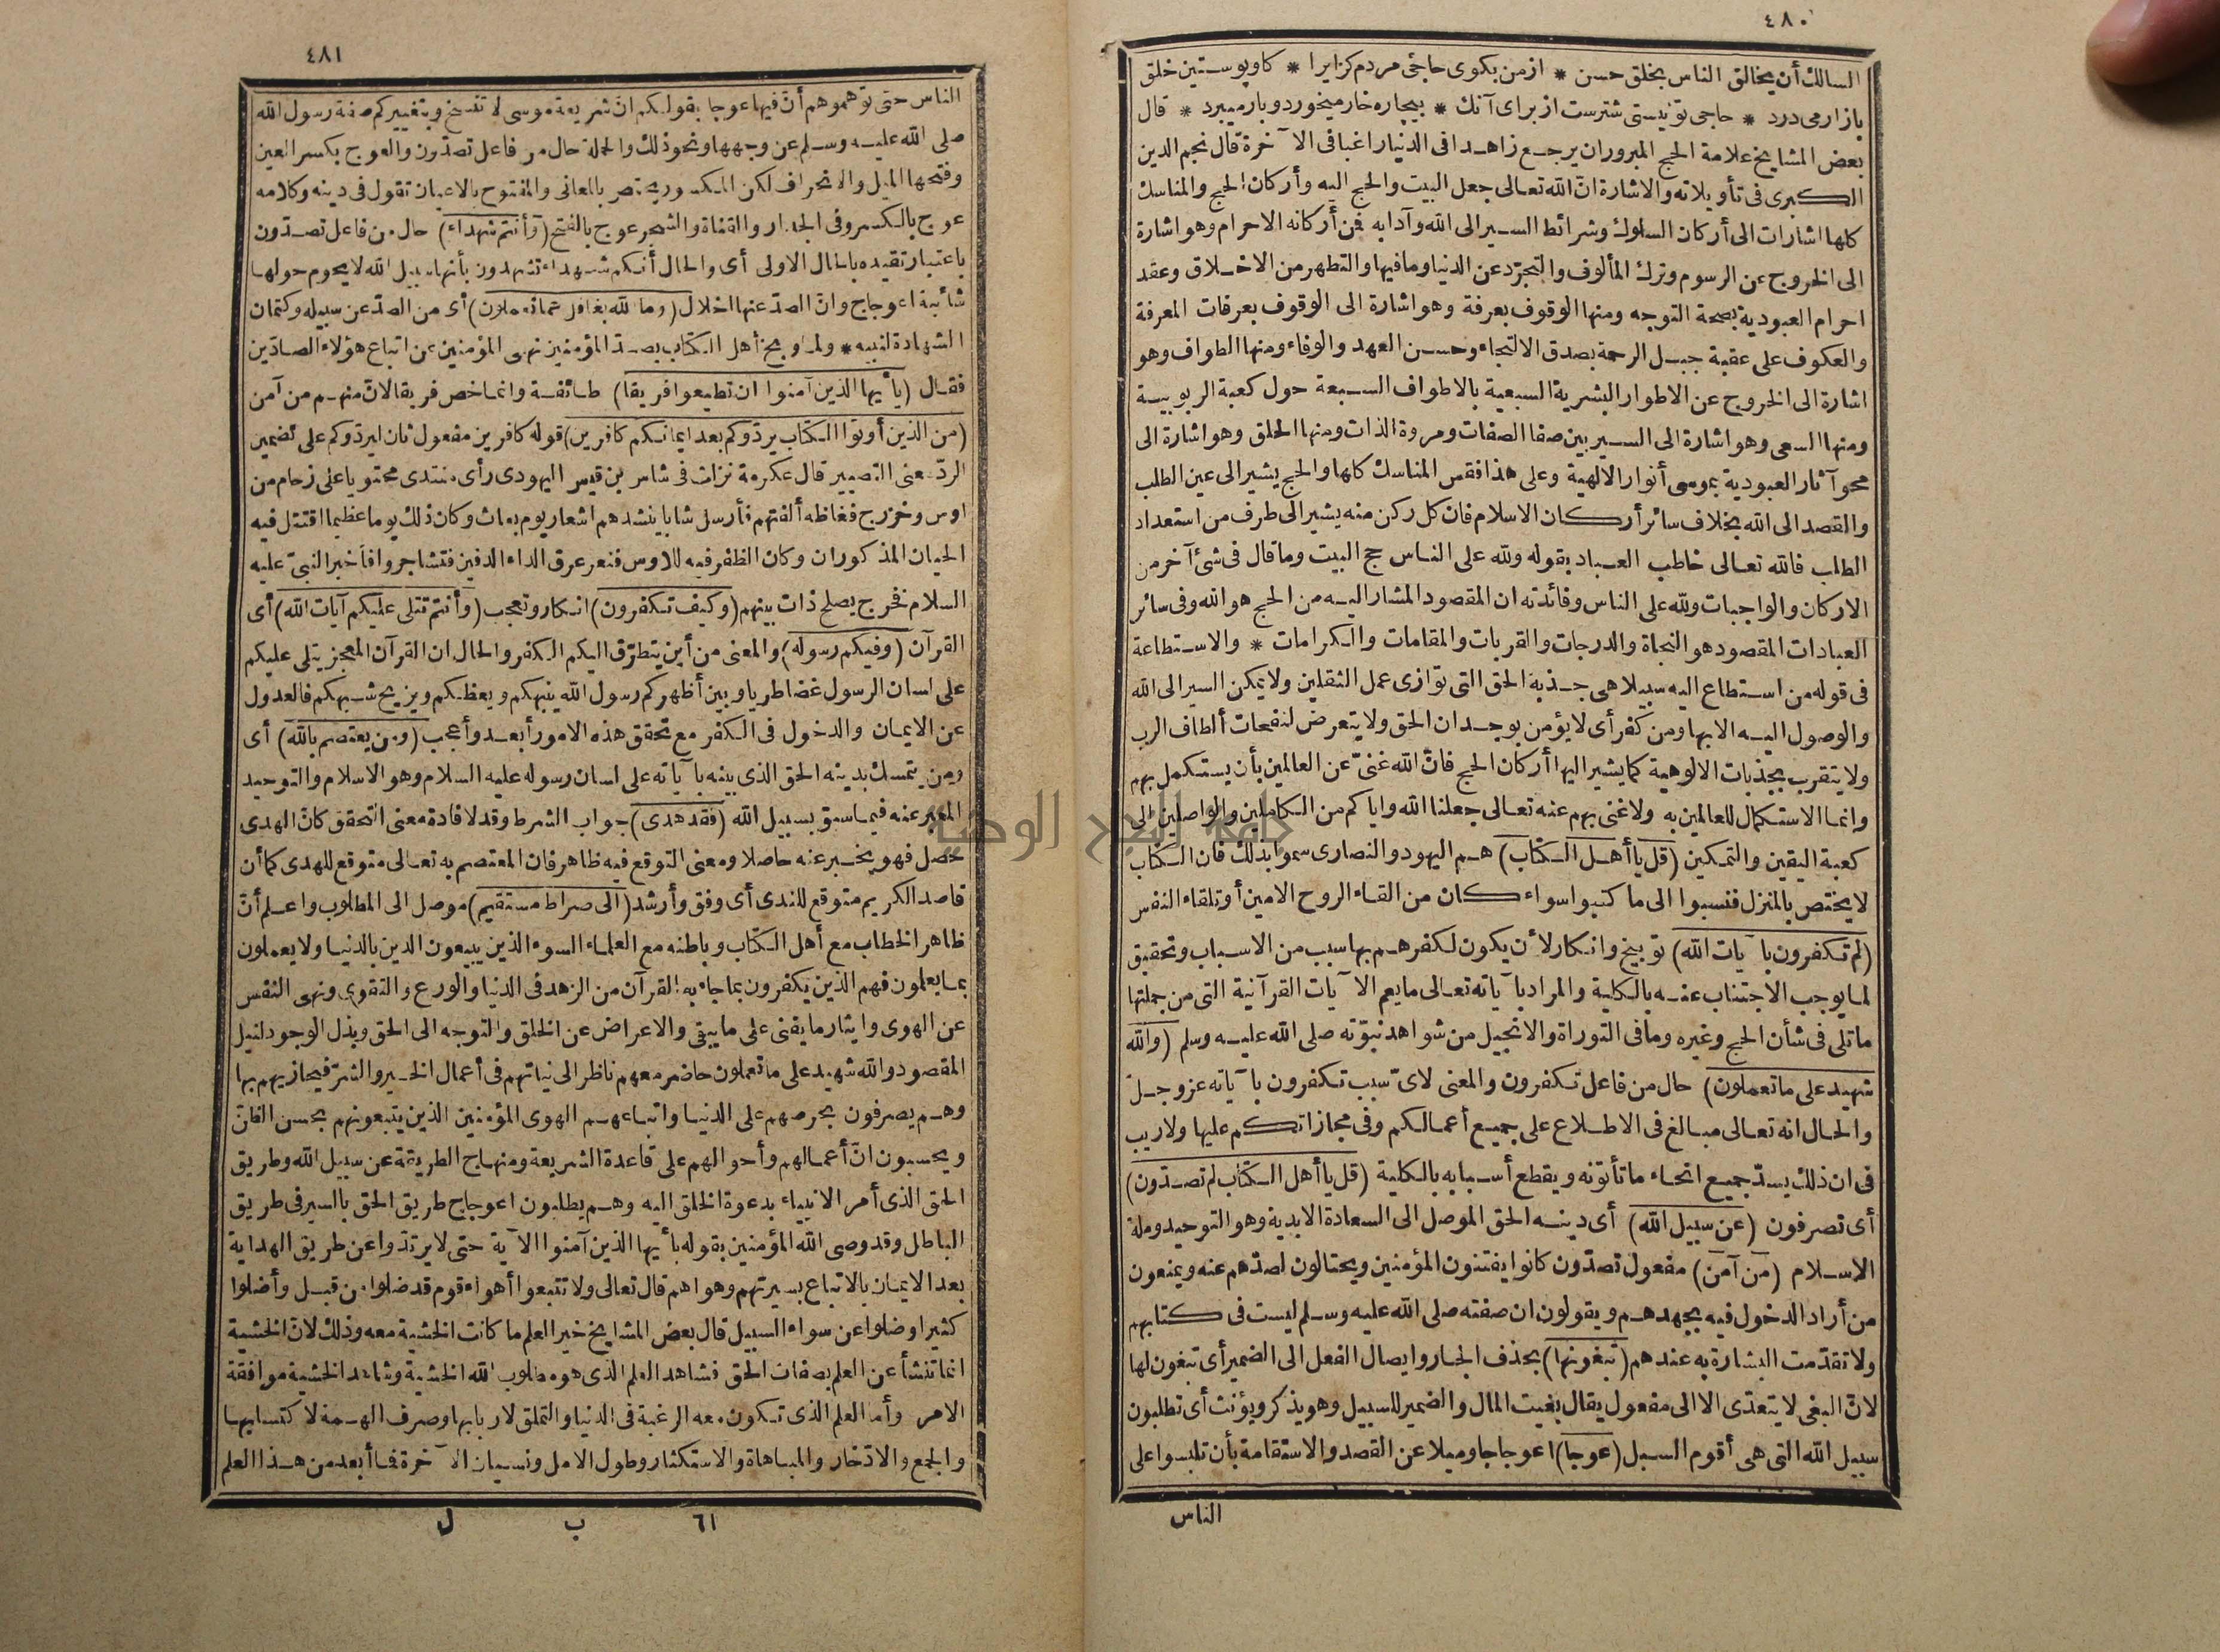 ٤٨٠
السالك أن يخالق الناس بخلق حسن * ازمن بكوى حاجئ مردم كزايرا * كاوپوستين خلق
بازار مى درد * حاجى تونيستى شترست از براى آنك * بيچاره خار ميخورد وبار ميبرد * قال
بعض المشايخ علامة الحج المبرور ان يرجع زاهدا فى الدنيا راغبا فى الآخرة قال نجم الدين
الكبرى فى تأويلاته والاشارة انّ الله تعالى جعل البيت والحج اليه وأركان الحج والمناسك
كلها اشارات الى أركان السلوك وشرائط السير الى الله وآدابه فمن أركانه الاحرام وهو اشارة
الى الخروج عن الرسوم وترك المألوف والتجرّد عن الدنيا وما فيها والتطهر من الاخلاق وعقد
احرام العبودية بصحة التوجه ومنها الوقوف بعرفة وهو اشارة الى الوقوف بعرفات المعرفة
والعكوف على عقبة جبل الرحمة بصدق الالتجاء وحسن العهد والوفاء ومنها الطواف وهو
اشارة الى الخروج عن الاطوار البشرية السبعية بالاطواف السبعة حول كعبة الربوبية
ومنها السعى وهو اشارة الى السير بين صفا الصفات ومروة الذات ومنها الحلق وهو اشارة الى
محو آثار العبودية بموسى أنوار الالهية وعلى هذا فقس المناسك كلها والحج يشير الى عين الطلب
والقصد الى الله بخلاف سائر أركان الاسلام فان كل ركن منه يشير الى طرف من استعداد
الطلب فالله تعالى خاطب العباد بقوله ولله على الناس حج البيت وما قال فى شئ آخر من
الاركان والواجبات ولله على الناس وفائدته ان المقصود المشار اليه من الحج هو الله وفى سائر
العبادات المقصود هو النجاة والدرجات والقربات والمقامات والكرامات * والاستطاعة
فى قوله من استطاع اليه سبيلا هى جذبة الحق التى توازى عمل الثقلين ولا يمكن السير الى الله
والوصول اليه الا بها ومن كفر أى لا يؤمن بوجدان الحق ولا يتعرض لنفحات ألطاف الرب
ولا يتقرب بجذبات الالوهية كما يشير اليها أركان الحج فانّ الله غنىّ عن العالمين بأن يستكمل بهم
وانما الاستكمال للعالمين به ولا غنى بهم عنه تعالى جعلنا الله واياكم من الكاملين والواصلين الى
كعبة اليقين والتمكين (قل يا أهل الكتاب) هم اليهود والنصارى سموا بذلك فان الكتاب
لا يختص بالمنزل فنسبوا الى ما كتبوا سواء كان من القاء الروح الامين أو تلقاء النفس
(لم تكفرون بآيات الله) توبيخ وانكار لأن يكون لكفرهم بها سبب من الاسباب وتحقيق
لما يوجب الاجتناب عنه بالكلية والمراد بآياته تعالى ما يعم الآيات القرآنية التى من جملتها
ما تلى فى شأن الحج وغيره وما فى التوراة والانجيل من شواهد نبوّته صلى الله عليه وسلم (والله
شهيد على ما تعملون) حال من فاعل تكفرون والمعنى لاىّ سبب تكفرون بآياته عز وجل
والحال انه تعالى مبالغ فى الاطلاع على جميع أعمالكم وفى مجازاتكم عليها ولا ريب
فى ان ذلك يسدّ جميع انحاء ما تأتونه ويقطع أسبابه بالكلية (قل يا أهل الكتاب لم تصدّون)
أى تصرفون (عن سبيل الله) أى دينه الحق الموصل الى السعادة الابدية وهو التوحيد وملة
الاسلام (من آمن) مفعول تصدّون كانوا يفتنون المؤمنين ويحتالون لصدّهم عنه ويمنعون
من أراد الدخول فيه بجهدهم ويقولون ان صفته صلى الله عليه وسلم ليست فى كتابهم
ولا تقدّمت البشارة به عندهم (تبغونها) بحذف الجار وايصال الفعل الى الضمير أى تبغون لها
لانّ البغى لا يتعدّى الا الى مفعول يقال بغيت المال والضمير للسبيل وهو يذكر ويؤنث أى تطلبون
سبيل الله التى هى أقوم السبل (عوجا) اعوجاجا وميلا عن القصد والاستقامة بأن تلبسوا على
الناس
٤٨١
الناس حتى توهموهم أنّ فيها عوجا بقولكم انّ شريعة موسى لا تنسخ وبتغييركم صفة رسول الله
صلى الله عليه وسلم عن وجهها ونحو ذلك والجملة حال من فاعل تصدّون والعوج بكسر العين
وفتحها الميل والانحراف لكن المكسور يختص بالمعانى والمفتوح بالاعيان تقول فى دينه وكلامه
عوج بالكسر وفى الجدار والقناة والشجر عوج بالفتح (وأنتم شهداء) حال من فاعل تصدّون
باعتبار تقيده بالحال الاولى أى والحال أنكم شهداء تشهدون بأنها سبيل الله لا يحوم حولها
شائبة اعوجاج وانّ الصدّ عنها اضلال (وما الله بغافل عما تعملون) أى من الصدّ عن سبيله وكتمان
الشهادة لنبيه * ولما وبخ أهل الكتاب بصدّ المؤمنين نهى المؤمنين عن اتباع هؤلاء الصادّين
فقال (يا أيها الذين آمنوا ان تطيعوا فريقا) طائفة وانما خص فريقا لانّ منهم من آمن
(من الذين أوتوا الكتاب يردّوكم بعد ايمانكم كافرين) قوله كافرين مفعول ثان ليردّوكم على تضمير
الردّ معنى التصيير قال عكرمة نزلت فى شاس بن قيس اليهودى رأى منتدى محتويا على زحام من
اوس وخزرج فغاظه ألفتهم فأرسل شابا ينشدهم اشعار يوم بعاث وكان ذلك يوما عظيما اقتتل فيه
الحيان المذكوران وكان الظفر فيه للاوس فنعر عرق الداء الدفين فتشاجروا فأخبر النبىّ عليه
السلام فخرج يصلح ذات بينهم (وكيف تكفرون) انكار وتعجب (وأنتم تتلى عليكم آيات الله) أى
القرآن (وفيكم رسوله) والمعنى من أين يتطرّق اليكم الكفر والحال ان القرآن المعجز يتلى عليكم
على لسان الرسول غضا طريا وبين أظهركم رسول الله ينبهكم ويعظكم ويزيح شبهكم فالعدول
عن الايمان والدخول فى الكفر مع تحقق هذه الامور أبعد وأعجب (ومن يعتصم بالله) أى
ومن يتمسك بدينه الحق الذى بينه بآياته على لسان رسوله عليه السلام وهو الاسلام والتوحيد
المعبر عنه فيما سبق بسبيل الله (فقد هدى) جواب الشرط وقد لافادة معنى التحقق كانّ الهدى
حصل فهو يخبر عنه حاصلا ومعنى التوقع فيه ظاهر فان المعتصم به تعالى متوقع للهدى كما أن
قاصد الكريم متوقع للندى أى وفق وأرشد (الى صراط مستقيم) موصل الى المطلوب واعلم أنّ
ظاهر الخطاب مع أهل الكتاب وباطنه مع العلماء السوء الذين يبيعون الدين بالدنيا ولا يعملون
بما يعلمون فهم الذين يكفرون بما جاء به القرآن من الزهد فى الدنيا والورع والتقوى ونهى النفس
عن الهوى وايثار ما يفنى على ما يبقى والاعراض عن الخلق والتوجه الى الحق وبذل الوجود لنيل
المقصود والله شهيد على ما تعملون حاضر معهم ناظر الى نياتهم فى أعمال الخير والشرّ فيجازيهم بها
وهم يصرفون بحرصهم على الدنيا واتباعهم الهوى المؤمنين الذين يتبعونهم بحسن الظنّ
ويحسبون انّ أعمالهم وأحوالهم على قاعدة الشريعة ومنهاج الطريقة عن سبيل الله وطريق
الحق الذى أمر الانبياء بدعوة الخلق اليه وهم يطلبون اعوجاج طريق الحق بالسير فى طريق
الباطل وقد وصى الله المؤمنين بقوله يا أيها الذين آمنوا الآية حتى لا يرتدّوا عن طريق الهداية
بعد الايمان بالاتباع بسيرتهم وهواهم قال تعالى ولا تتبعوا أهواء قوم قد ضلوا من قبل وأضلوا
كثيرا وضلوا عن سواء السبيل قال بعض المشايخ خير العلم ما كانت الخشية معه وذلك لانّ الخشية
انما تنشأ عن العلم بصفات الحق فشاهد العلم الذى هو مطلوب الله الخشية وشاهد الخشية موافقة
الامر وأما العلم الذى تكون معه الرغبة فى الدنيا والتملق لاربابها وصرف الهمة لاكتسابها
والجمع والادّخار والمباهاة والاستكثار وطول الامل ونسيان الآخرة فما أبعد من هذا العلم
٦١ ب ل